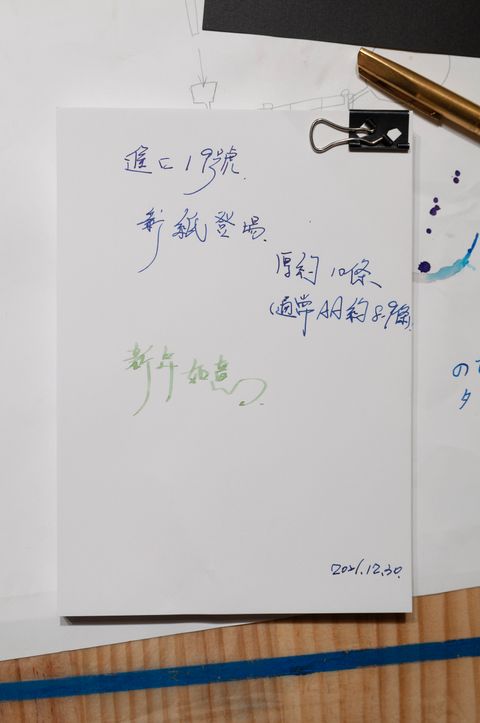 進口19號
新紙登場.
厚約10條
(通常AA約8.9條
新年如意
2021.12.30.
の
タ